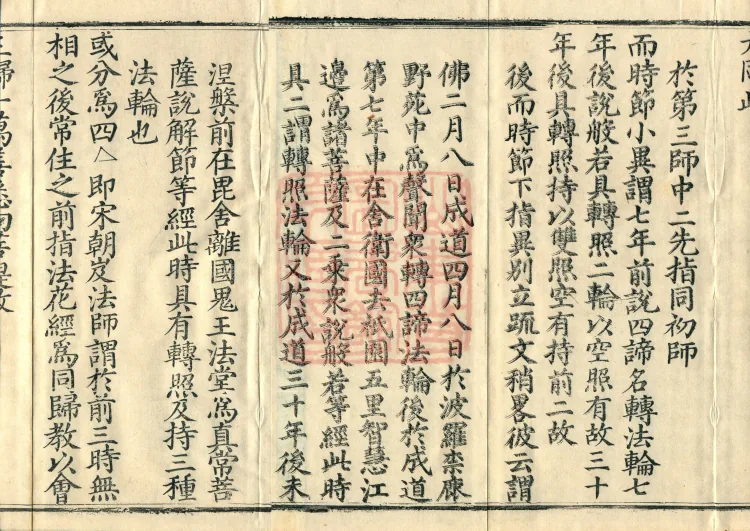 於第三師中二先指同初師
而時節小異謂七年前說四諦名轉法輪七
年後說般若具轉照二輪以空照有故三十
年後具轉照持以雙照空有持前二故
後而時節下指異別立䟽文稍畧彼云謂
佛二月八日成道四月八日於波羅柰鹿
野苑中爲聲聞衆轉四諦法輪後於成道
第七年中在舍衛國去祇園五里智慧江
邊爲諸菩薩及二乗衆說般若等經此時
具二謂轉照法輪又於成道三十年後未
涅槃前在毘舍離國鬼王法堂爲真常菩
薩說解節等經此時具有轉照及持三種
法輪也
或分爲四△即宋朝岌法師謂於前三時無
相之後常住之前指法花經爲同歸教以會